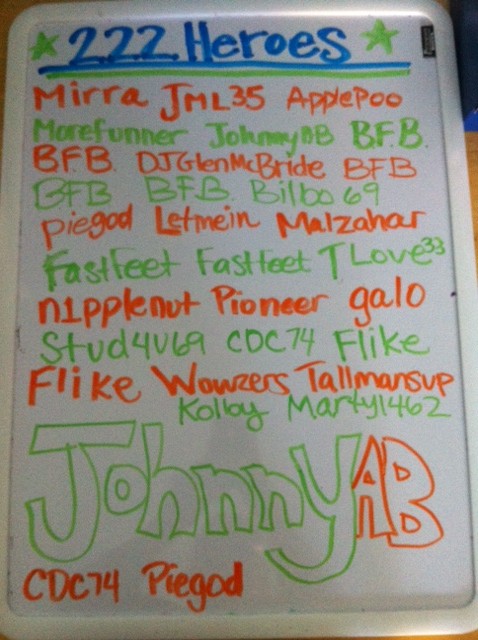 222 Heroes
Mirra JML35 ApplePoo
Morefunner JohnnyAB B.F.B.
B.F.B. DJGlenMcBride BFB
BFB BFB Bilbo69
piegod Letmein Malzahar
FastFeet Fastfeet TLove33
n1pplenut Pioneer galo
Stud4U69 CDC74 Flike
Flike Wowzers Tallmansup
Kolby Marty1462
JohnnyAB
CDC74 Piegod